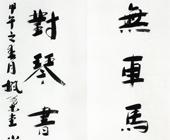 無車馬
對琴書
甲午之春月